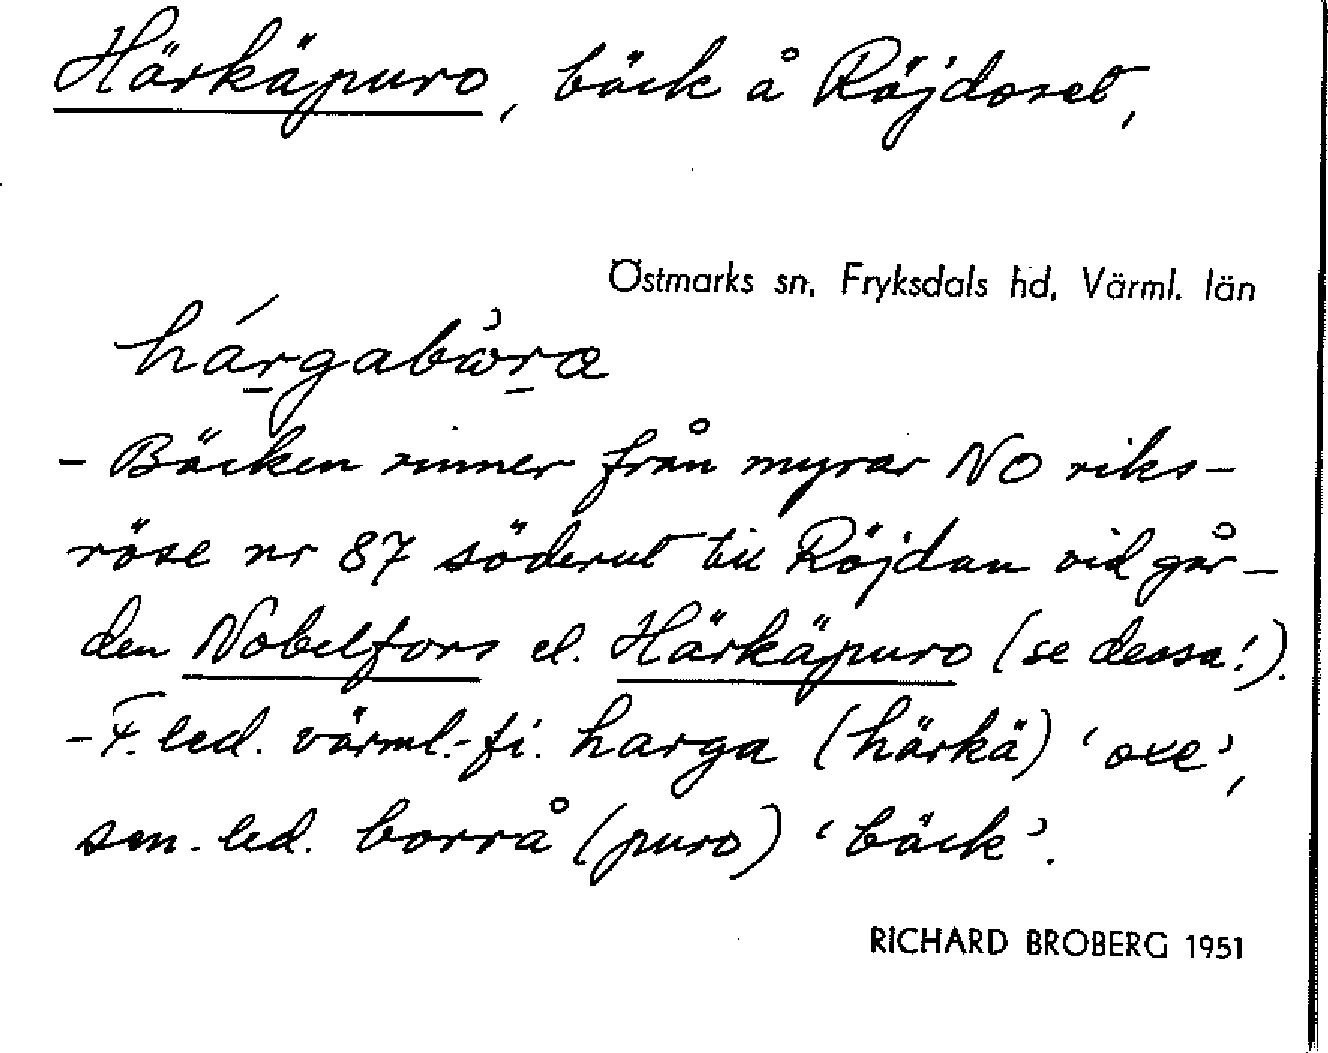 Härkäpuro, bäck å Röjdoset,
Östmarks sn, Fryksdals hd, Värml. län
hárgabɷ̀ra
- Bäcken rinner från myrar NO riks-
röse nr 87 söderut till Röjdan vid går-
den Nobelfors el. Härkäpuro (se dessa!).
- F. led. värml.-fi. harga (härkä) 'oxe',
sen. led. borrå (puro) 'bäck'.
RICHARD BROBERG 1951